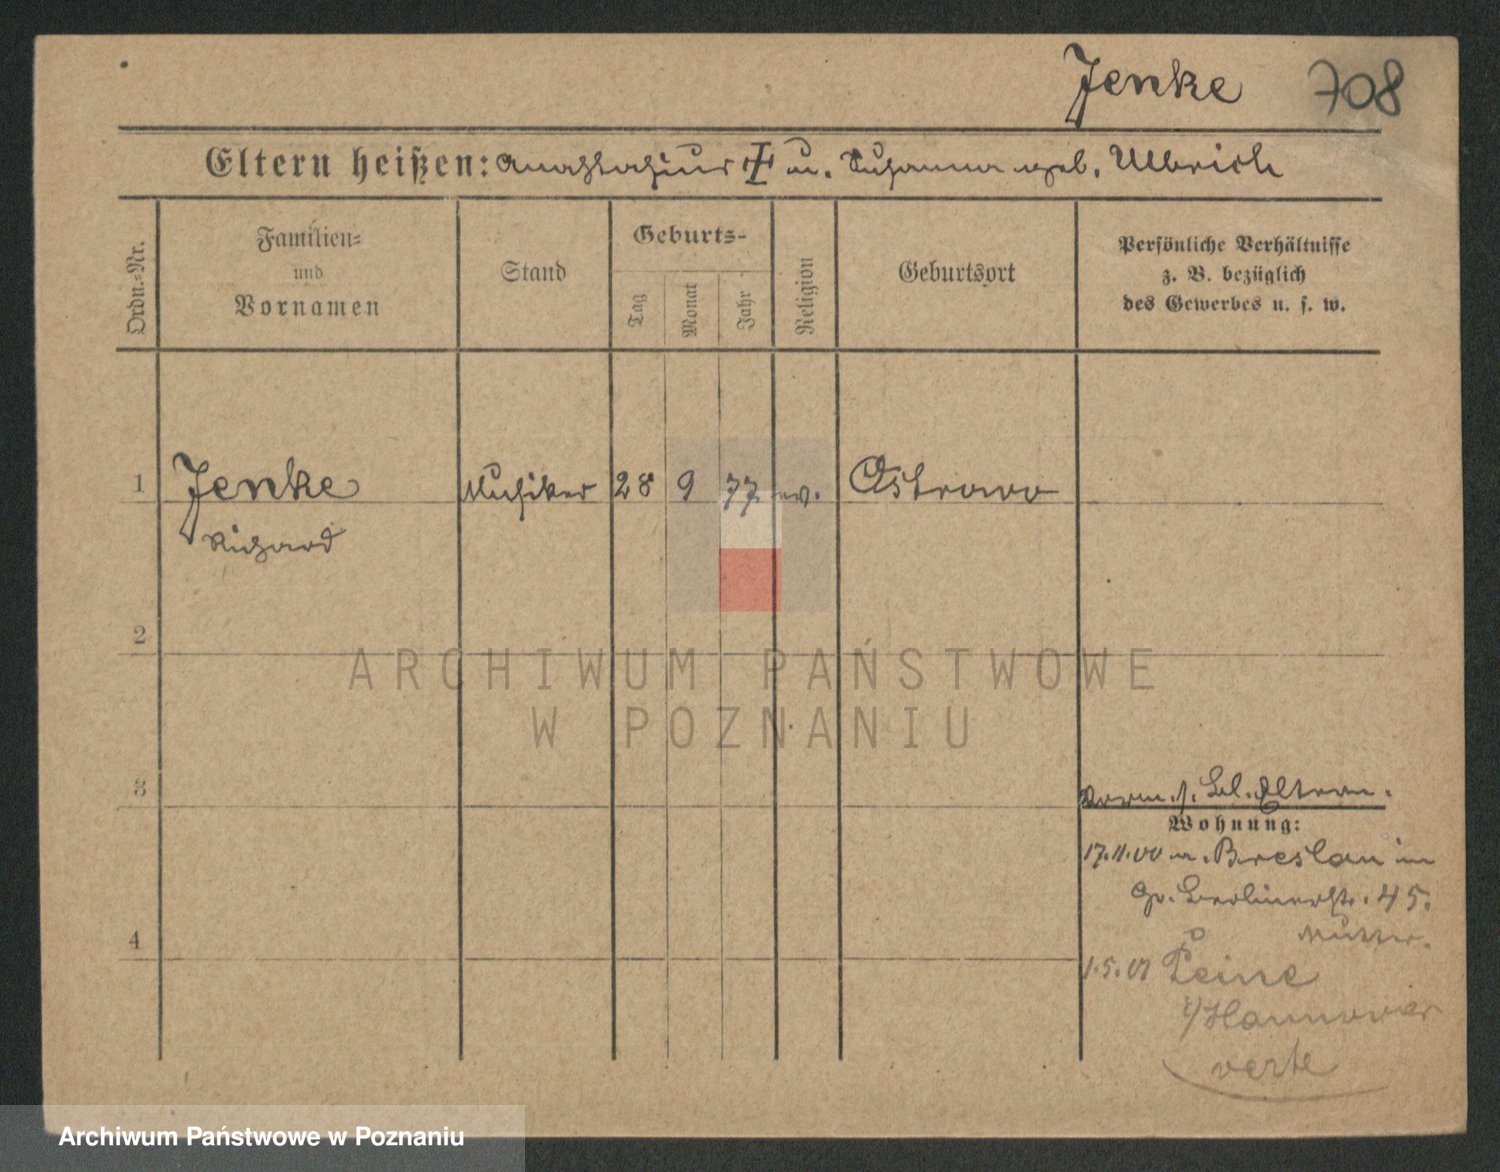 Jenke 708
Eltern heißen: Anasthasius † u. Susanna geb. Ulbrich
Ordn.-Nr.
Familien-
und
Vornamen
Stand
Geburts-
Tag
Monat
Jahr
Religion
Geburtsort
Persönliche Verhältnisse
z. B. bezüglich
des Gewerbes u. s. w.
1 Jenke Musiker 28 9 77 ev. Ostrowo
Richard
2
ARCHIWUM PAŃSTWOWE
W POZNANIU
3
Vorm. s. Bl. Eltern.
Wohnung:
17.11.00 n. Breslau in
Gr. Berlinerstr. 45.
4
Mutter.
1.5.01 Peine
i/Hannover
verte
Archiwum Państwowe w Poznaniu